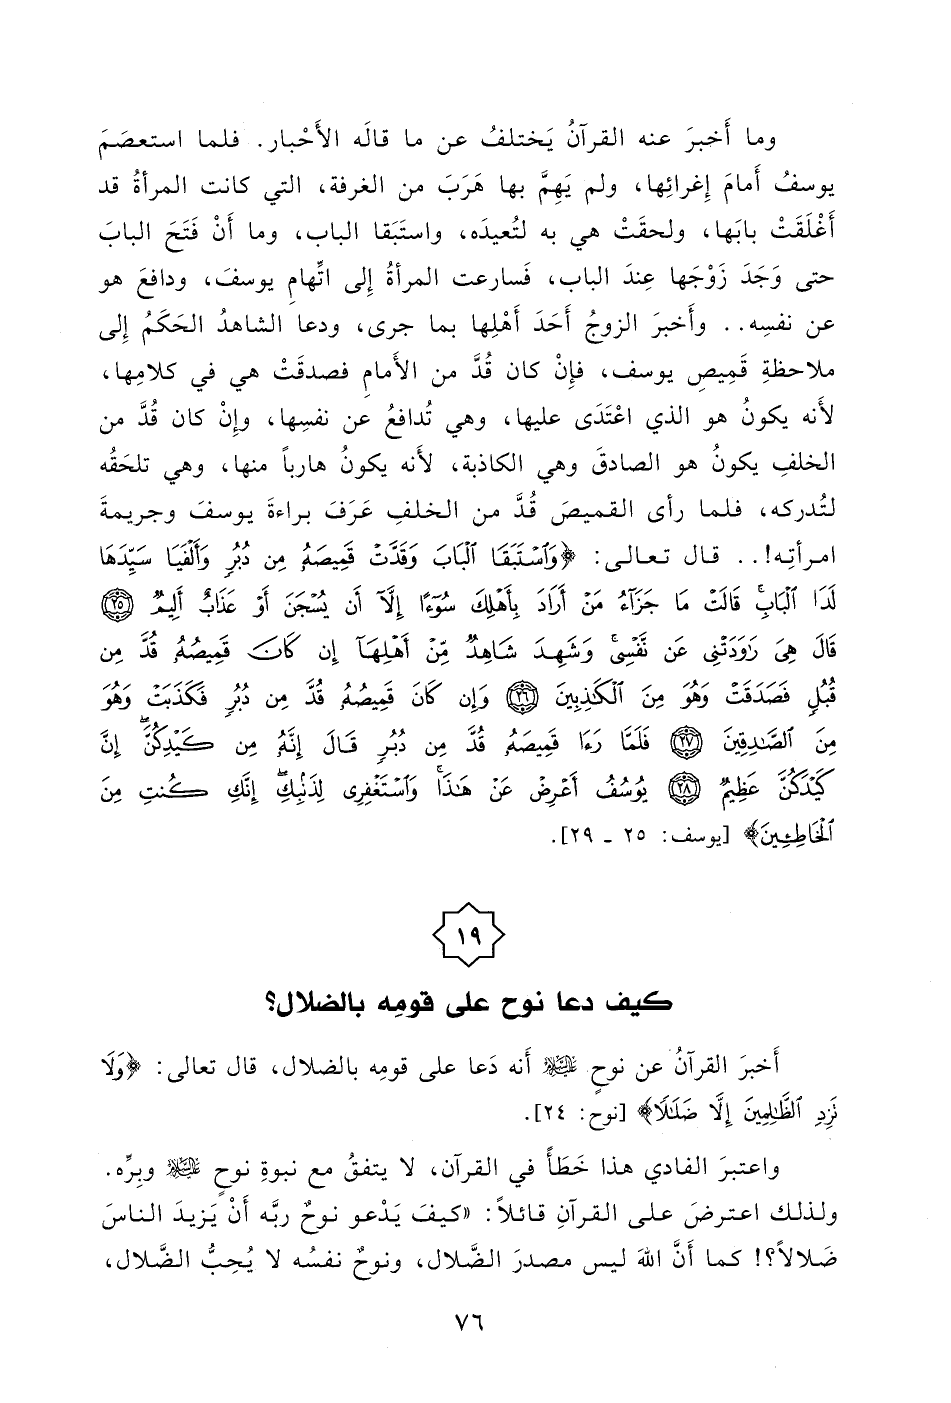 وما أَخبرَ عنه القرآنُ يَختلفُ عن ما قالَه الأَحْبار. فلما استعصَمَ
يوسفُ أَمامَ إِغرائِها، ولم يَهِمَّ بها هَرَبَ من الغرفة، التي كانت المرأةُ قد
أَغْلَقَتْ بابَها، ولحقَتْ هي به لتُعيدَه، واستَبَقا الباب، وما أَنْ فَتَحَ البابَ
حتى وَجَدَ زَوْجَها عِندَ الباب، فَسارعت المرأةُ إِلى اتِّهامِ يوسفَ، ودافعَ هو
عن نفسِه.. وأَخبرَ الزوجُ أَحَدَ أَهْلِها بما جرى، ودعا الشاهدُ الحَكَمُ إِلى
ملاحظةِ قَميصِ يوسف، فإِنْ كان قُدَّ من الأَمامِ فصدقَتْ هي في كلامِها،
لأَنه يكونُ هو الذي اعْتَدَى عليها، وهي تُدافعُ عن نفسِها، وإِنْ كان قُدَّ من
الخلفِ يكونُ هو الصادقَ وهي الكاذبة، لأَنه يكونُ هارباً منها، وهي تلحَقُه
لتُدركه، فلما رأى القميصَ قُدَّ من الخلفِ عَرَفَ براءةَ يوسفَ وجريمةَ
امرأتِه!.. قال تعالى: ﴿وَٱسْتَبَقَا ٱلْبَابَ وَقَدَّتْ قَمِيصَهُۥ مِن دُبُرٍ وَأَلْفَيَا سَيِّدَهَا
لَدَا ٱلْبَابِۚ قَالَتْ مَا جَزَآءُ مَنْ أَرَادَ بِأَهْلِكَ سُوٓءًا إِلَّآ أَن يُسْجَنَ أَوْ عَذَابٌ أَلِيمٌ ۝٢٥
قَالَ هِىَ رَٰوَدَتْنِى عَن نَّفْسِىۚ وَشَهِدَ شَاهِدٌ مِّنْ أَهْلِهَآ إِن كَانَ قَمِيصُهُۥ قُدَّ مِن
قُبُلٍ فَصَدَقَتْ وَهُوَ مِنَ ٱلْكَٰذِبِينَ ۝٢٦ وَإِن كَانَ قَمِيصُهُۥ قُدَّ مِن دُبُرٍ فَكَذَبَتْ وَهُوَ
مِنَ ٱلصَّٰدِقِينَ ۝٢٧ فَلَمَّا رَءَا قَمِيصَهُۥ قُدَّ مِن دُبُرٍ قَالَ إِنَّهُۥ مِن كَيْدِكُنَّۖ إِنَّ
كَيْدَكُنَّ عَظِيمٌ ۝٢٨ يُوسُفُ أَعْرِضْ عَنْ هَٰذَاۚ وَٱسْتَغْفِرِى لِذَنۢبِكِۖ إِنَّكِ كُنتِ مِنَ
ٱلْخَاطِـِٔينَ﴾ [يوسف: ٢٥ ـ ٢٩].
١٩
كيف دعا نوح على قومِه بالضلال؟
أَخبرَ القرآنُ عن نوحٍ عليه السلام أَنه دَعا على قومِه بالضلال، قال تعالى: ﴿وَلَا
نَزِدِ ٱلظَّٰلِمِينَ إِلَّا ضَلَٰلًا﴾ [نوح: ٢٤].
واعتبرَ الفادي هذا خَطَأً في القرآن، لا يتفقُ مع نبوةِ نوحٍ عليه السلام وبِرِّه.
ولذلك اعترضَ على القرآنِ قائلاً: «كيفَ يَدْعو نوحٌ ربَّه أَنْ يَزيدَ الناسَ
ضَلالاً؟! كما أَنَّ اللهَ ليس مصدرَ الضَّلال، ونوحٌ نفسُه لا يُحِبُّ الضَّلال،
٧٦